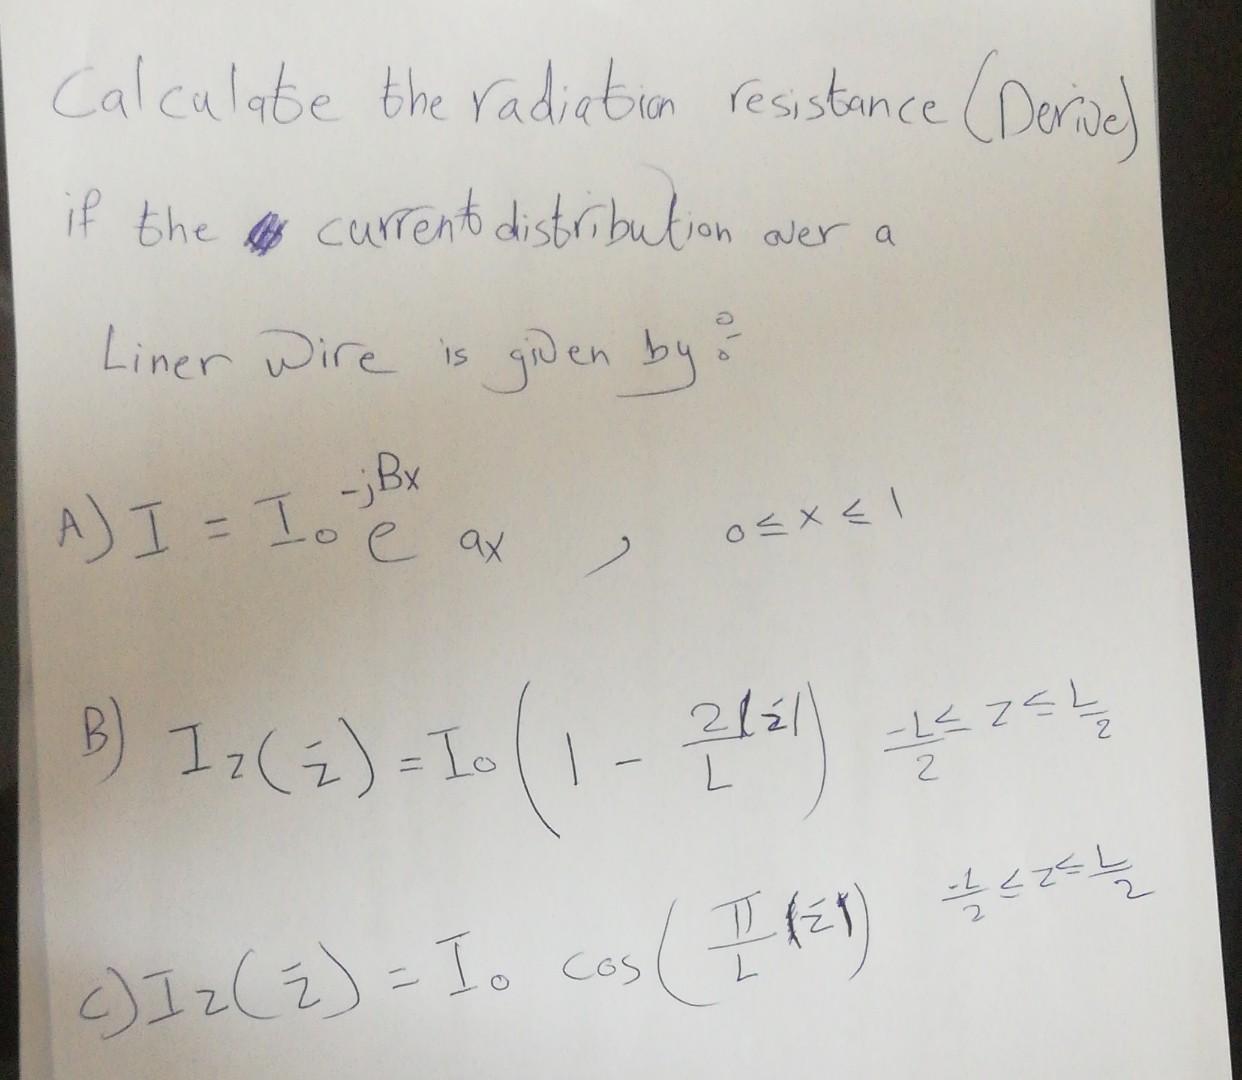 Calculate the radiation resistance (Derive)
if the current distribution over a
Liner wire is given by :
A) I = I₀ e^{-jBx} ax , 0 ≤ x ≤ 1
B) Iz(z̄) = I₀ (1 - 2|z̄|/L) -L/2 ≤ z ≤ L/2
C) Iz(z̄) = I₀ cos(π/L |z̄|) -L/2 ≤ z ≤ L/2